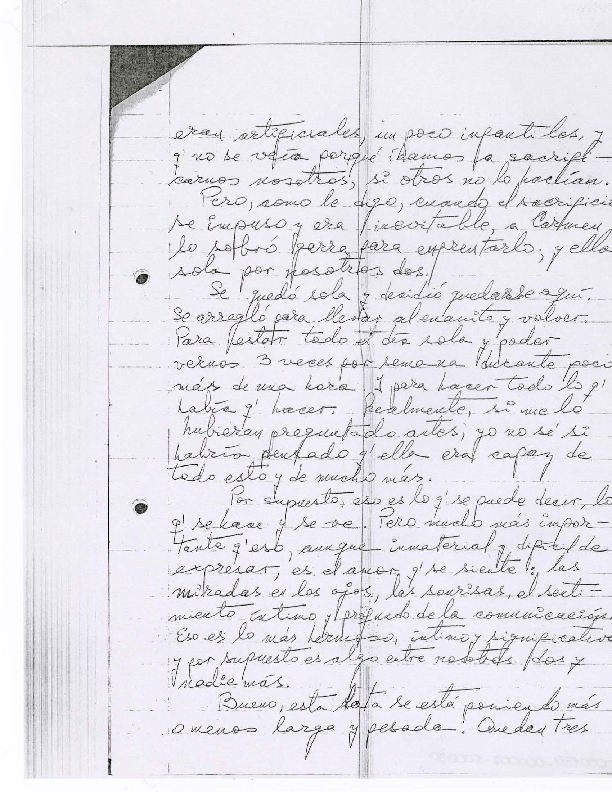 eran artificiales, un poco infantiles, y
q' no se veía porqué íbamos a sacrifi-
carnos nosotros, si otros no lo hacían.
Pero, como le digo, cuando el sacrificio
se impuso y era inevitable, a Carmen
le sobró garra para enfrentarlo; y ella
sola por nosotros dos.
Se quedó sola y decidió quedarse aquí.
Se arregló para llevar al enanito y volver.
Para estar todo el día sola y poder
vernos 3 veces por semana durante poco
más de una hora. Y para hacer todo lo q'
había q' hacer. Realmente, si me lo
hubieran preguntado antes, yo no sé si
habría pensado q' ella era capaz de
todo esto y de mucho más.
Por supuesto, eso es lo q' se puede decir, lo
q' se hace y se ve. Pero mucho más impor-
tante q' eso, aunque inmaterial y difícil de
expresar, es el amor q' se siente: las
miradas en los ojos, las sonrisas, el senti-
miento íntimo y profundo de la comunicación.
Eso es lo más hermoso, íntimo y significativo
y por supuesto es algo entre nosotros dos y
nadie más.
Bueno, esta lata se está poniendo más
o menos larga y pesada. Quedan tres